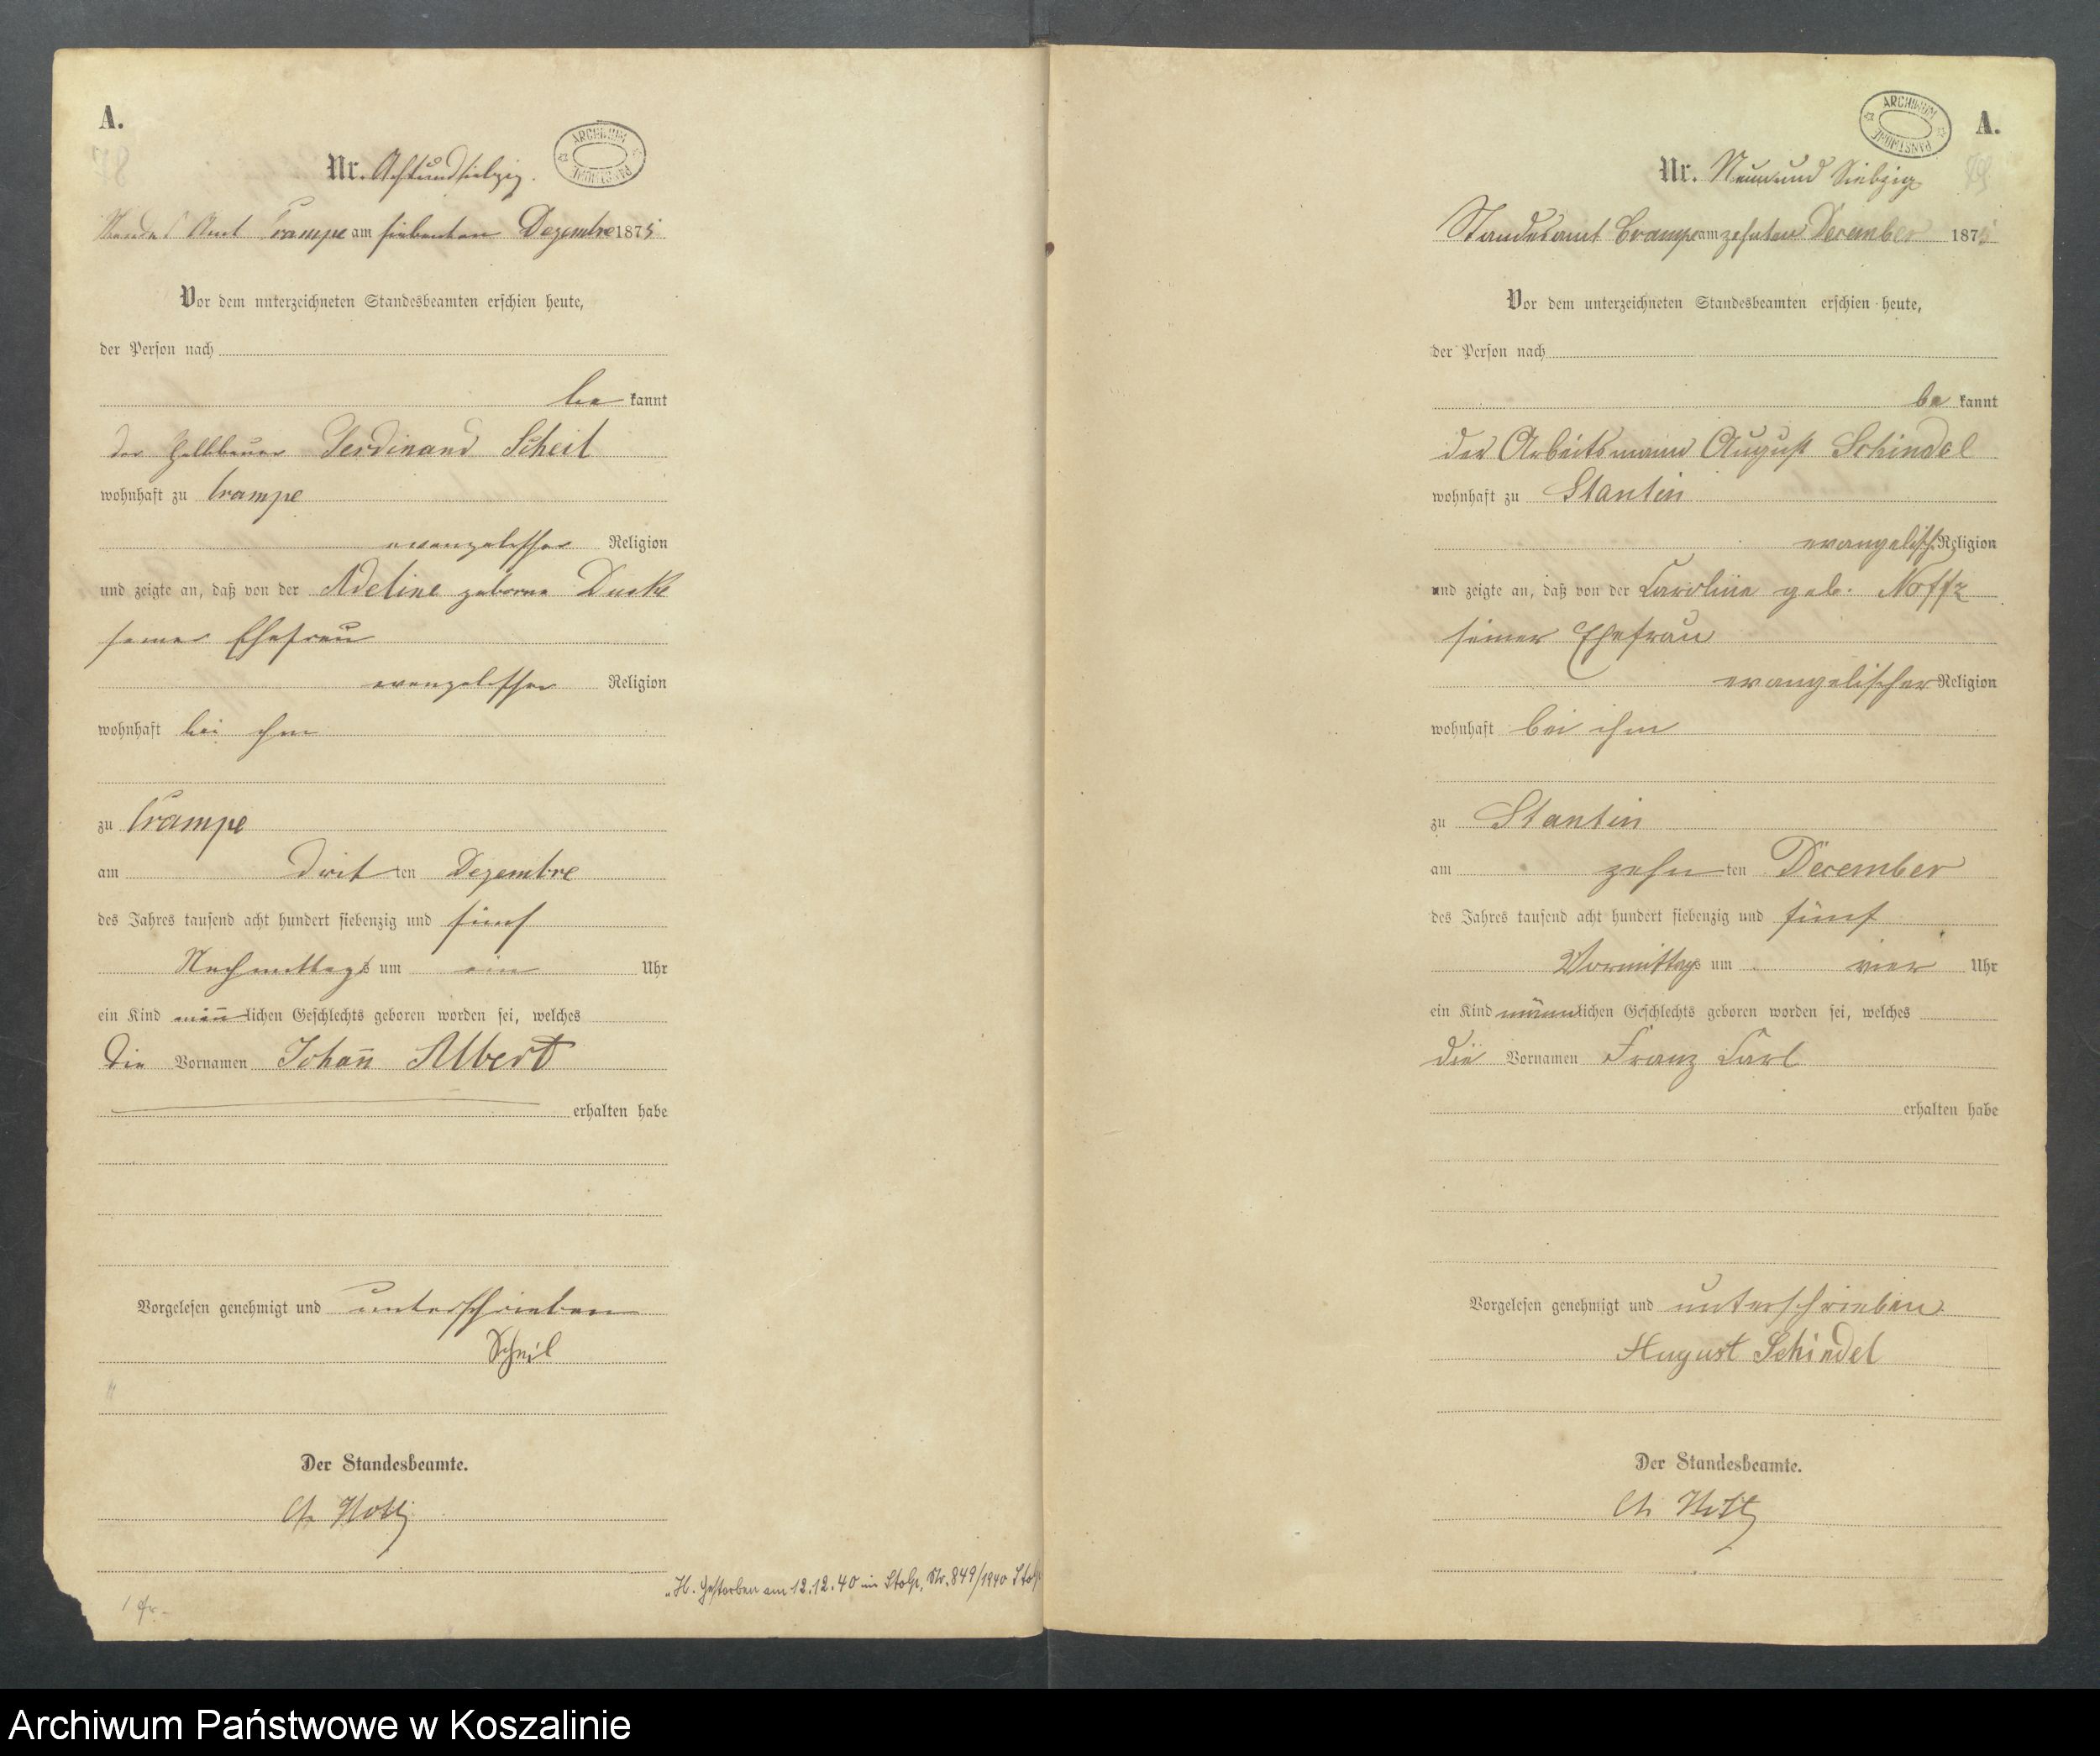 A.
ARCHIWUM PAŃSTWOWE
Nr. Achtundsiebzig.
Standes Amt Crampe am siebenten Dezembre 1875.
Vor dem unterzeichneten Standesbeamten erschien heute,
der Person nach
be kannt
der Halbbauer Ferdinand Scheil
wohnhaft zu Crampe
evangelischer Religion
und zeigte an, daß von der Adeline geborne Duske
seiner Ehefrau
evangelischer Religion
wohnhaft bei ihm
zu Crampe
am dritten Dezembre
des Jahres tausend acht hundert siebenzig und fünf
Nachmittags um ein Uhr
ein Kind mañlichen Geschlechts geboren worden sei, welches
die Vornamen Johañ Albert
erhalten habe
Vorgelesen genehmigt und unterschrieben
Scheil
Der Standesbeamte.
"H. Gestorben am 12.12.40 in Stolp, Nr. 849/1940 Stolp
A.
ARCHIWUM PAŃSTWOWE
79
Nr. Neunund Siebzig
Standesamt Crampe am zehnten December 1875
Vor dem unterzeichneten Standesbeamten erschien heute,
der Person nach
be kannt
der Arbeitsmann August Schindel
wohnhaft zu Stantin
evangelisch. Religion
und zeigte an, daß von der Caroline geb. Noffz
seiner Ehefrau
evangelischer Religion
wohnhaft bei ihm
zu Stantin
am zehnten December
des Jahres tausend acht hundert siebenzig und fünf
Vormittags um vier Uhr
ein Kind männlichen Geschlechts geboren worden sei, welches
die Vornamen Franz Carl
erhalten habe
Vorgelesen genehmigt und unterschrieben
August Schindel
Der Standesbeamte.
Archiwum Państwowe w Koszalinie